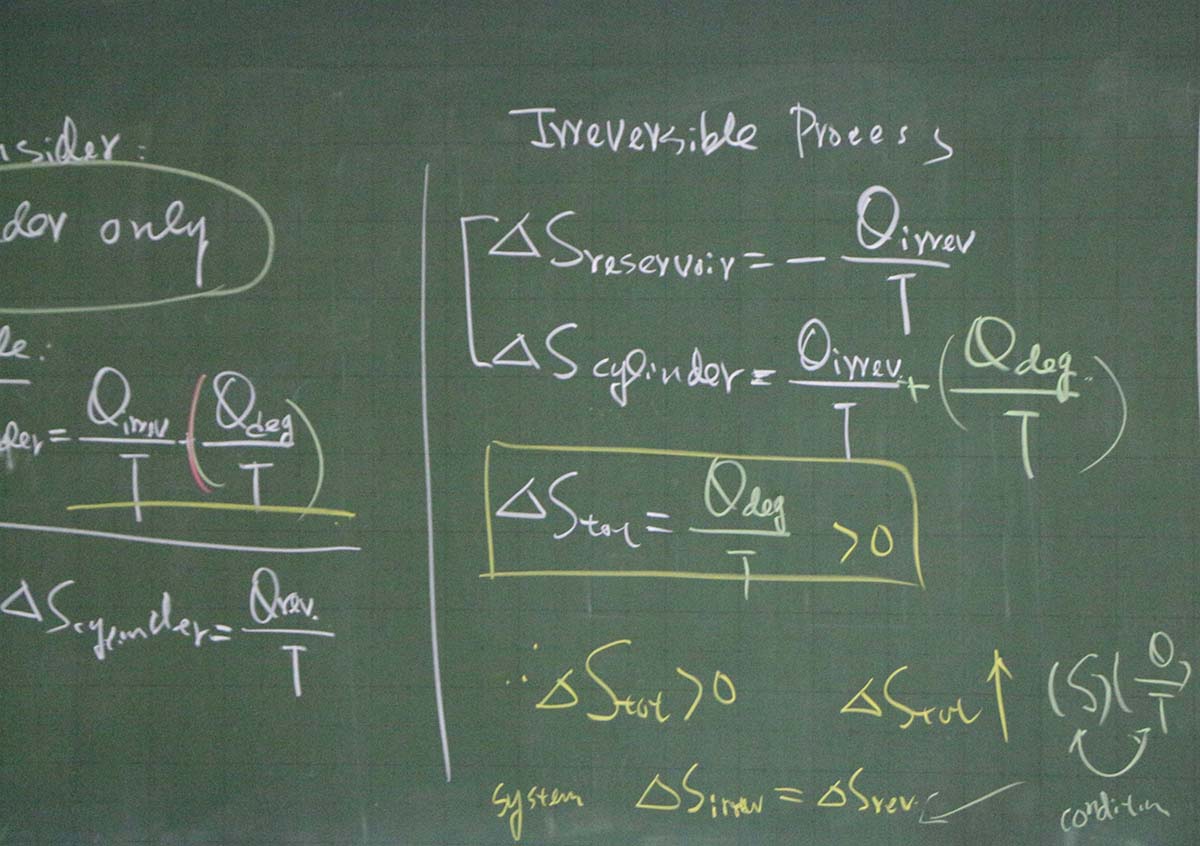 nsider:
der only
le:
der = Q_irrev/T + (Q_deg/T)
ΔS_cylinder = Q_rev./T
Irreversible Process
ΔS_reservoir = − Q_irrev/T
ΔS_cylinder = Q_irrev/T + (Q_deg/T)
ΔS_tot = Q_deg/T > 0
∴ ΔS_tot > 0 ΔS_tot ↑ (S) (Q/T)
system ΔS_irrev = ΔS_rev. condition